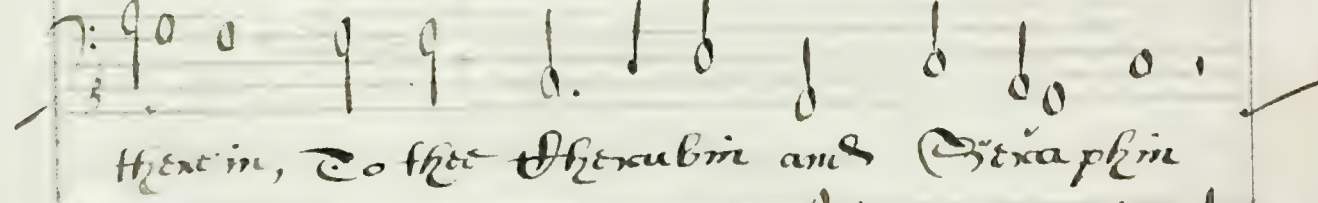 therein, To thee Cherubin and Seraphin